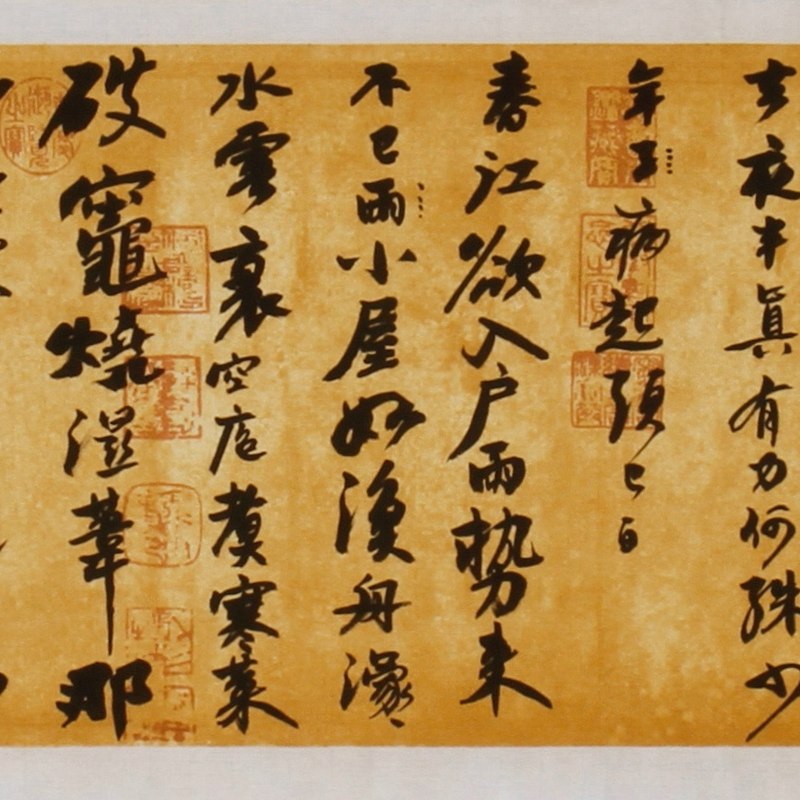 去夜半真有力何殊少
年子病起頭已白
春江欲入戶雨勢來
不已雨小屋如漁舟濛〻
水雲裏空庖煮寒菜
破竈燒濕葦那